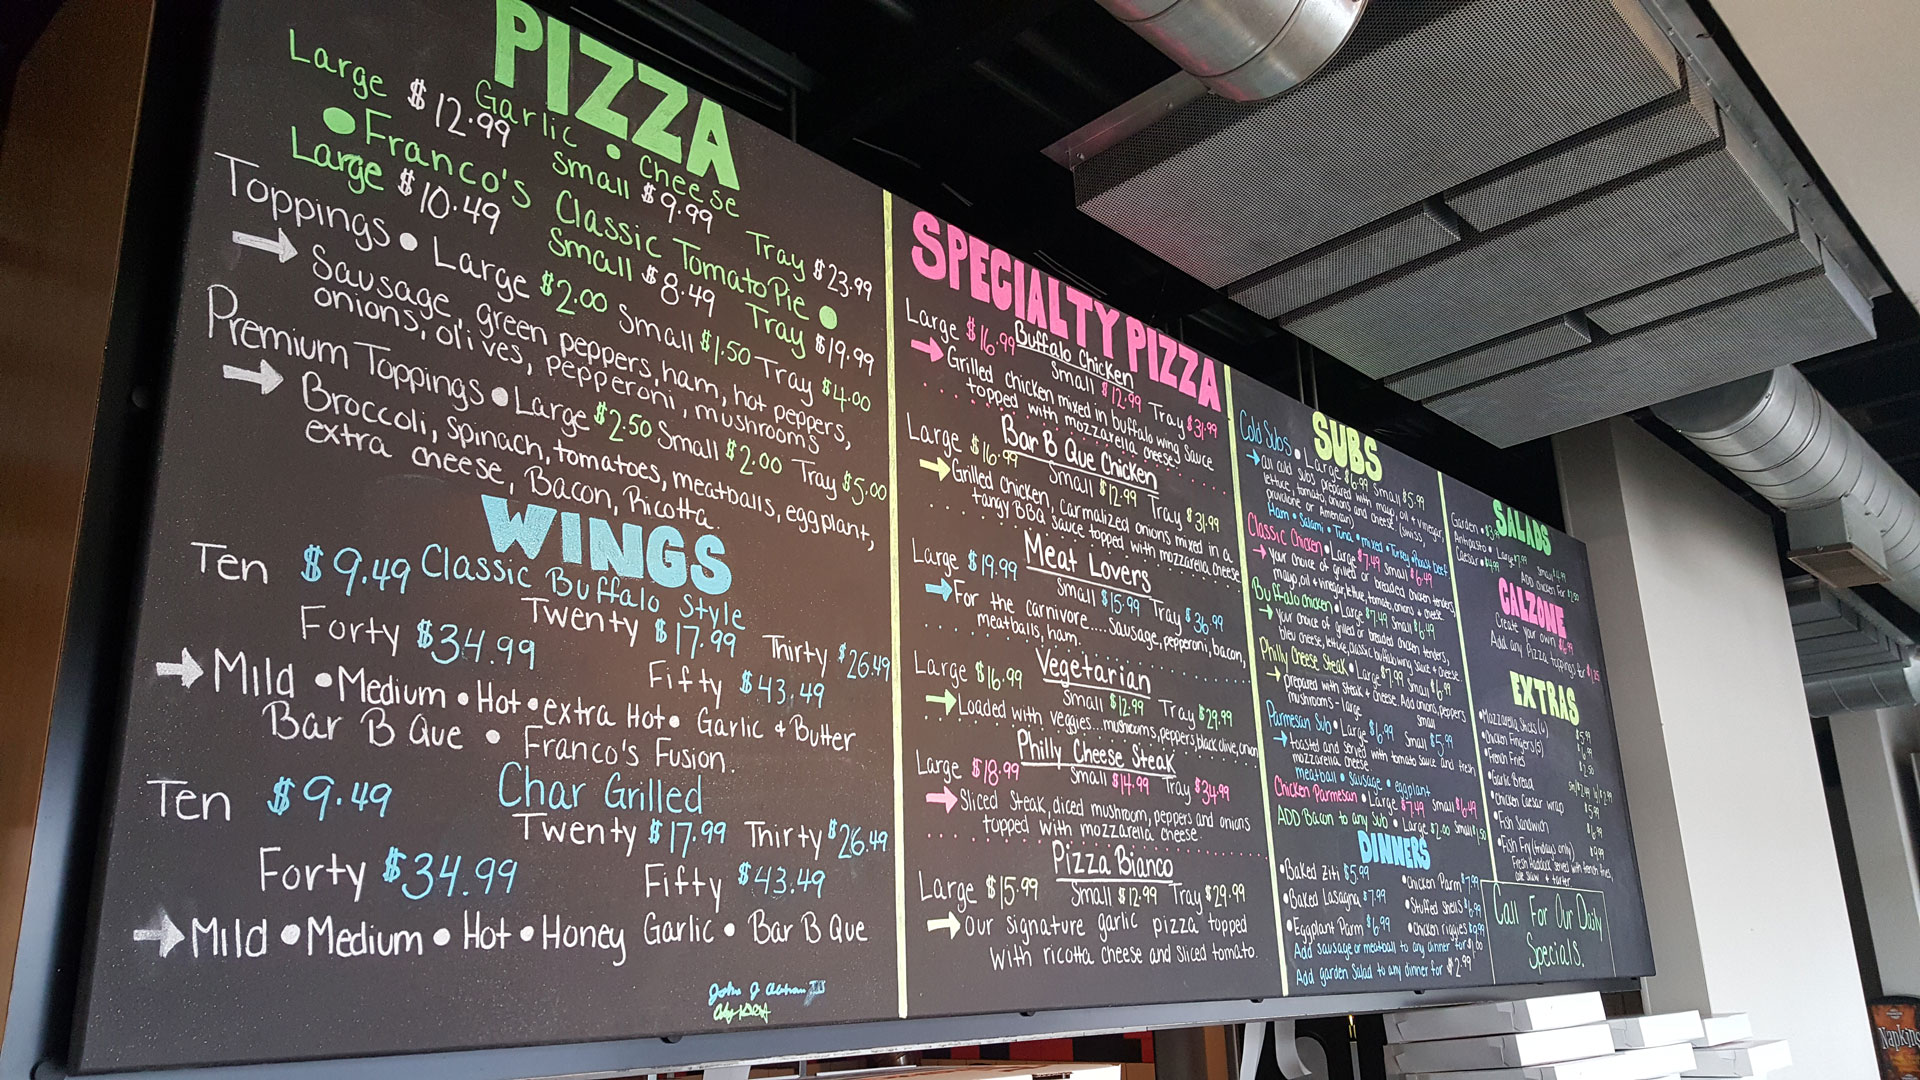 PIZZA
Garlic • Cheese
Large $12.99 Small $9.99 Tray $23.99
• Franco's Classic Tomato Pie •
Large $10.49 Small $8.49 Tray $19.99
Toppings • Large $2.00 Small $1.50 Tray $4.00
→ Sausage, green peppers, ham, hot peppers,
onions, olives, pepperoni, mushrooms
Premium Toppings • Large $2.50 Small $2.00 Tray $5.00
→ Broccoli, Spinach, tomatoes, meatballs, eggplant,
extra cheese, Bacon, Ricotta.
WINGS
Classic Buffalo Style
Ten $9.49 Twenty $17.99 Thirty $26.49
Forty $34.99 Fifty $43.49
→ Mild • Medium • Hot • extra Hot • Garlic & Butter
Bar B Que • Franco's Fusion.
Char Grilled
Ten $9.49 Twenty $17.99 Thirty $26.49
Forty $34.99 Fifty $43.49
→ Mild • Medium • Hot • Honey Garlic • Bar B Que
SPECIALTY PIZZA
Buffalo Chicken
Large $16.99 Small $12.99 Tray $31.99
→ Grilled chicken mixed in buffalo wing sauce
topped with mozzarella cheese
Bar B Que Chicken
Large $16.99 Small $12.99 Tray $31.99
→ Grilled chicken, carmalized onions mixed in a
tangy BBQ sauce topped with mozzarella cheese
Meat Lovers
Large $19.99 Small $15.99 Tray $36.99
→ For the carnivore.... sausage, pepperoni, bacon,
meatballs, ham.
Vegetarian
Large $16.99 Small $12.99 Tray $29.99
→ Loaded with veggies... mushrooms, peppers, black olive, onion
Philly Cheese Steak
Large $18.99 Small $14.99 Tray $34.99
→ Sliced Steak, diced mushroom, peppers and onions
topped with mozzarella cheese
Pizza Bianco
Large $15.99 Small $12.99 Tray $29.99
→ Our signature garlic pizza topped
with ricotta cheese and sliced tomato.
SUBS
Cold Subs • Large $6.99 Small $5.99
→ all cold subs prepared with mayo, oil + vinegar,
lettuce, tomato, onions and cheese (swiss,
provolone or American)
Ham • Salami • Tuna • mixed • Turkey • Roast beef
Classic Chicken • Large $7.49 Small $6.49
→ your choice of grilled or breaded chicken tenders,
mayo, oil + vinegar, lettuce, tomato, onions + cheese
Buffalo chicken • Large $7.49 Small $6.49
→ Your choice of grilled or breaded chicken tenders,
bleu cheese, lettuce, classic buffalo wing sauce + cheese
Philly Cheese Steak • Large $7.99 Small $6.99
→ prepared with steak + cheese. Add onions, peppers
mushrooms - large small
Parmesan Sub • Large $6.99 Small $5.99
→ toasted and served with tomato sauce and fresh
mozzarella cheese
meatball • Sausage • eggplant
Chicken Parmesan • Large $7.49 Small $6.49
ADD Bacon to any Sub • Large $2.00 Small $1.50
DINNERS
• Baked Ziti $5.99 • Chicken Parm $7.99
• Baked Lasagna $7.99 • Stuffed Shells $6.99
• Eggplant Parm $6.99 • Chicken riggies $9.99
Add sausage or meatball to any dinner for $1.00
Add garden Salad to any dinner for $2.99
SALADS
Garden •
Antipasto • Large $7.99 Small
Caesar • $4.99 ADD chicken For $2.00
CALZONE
Create your own $6.99
Add any Pizza toppings for $1.25
EXTRAS
• Mozzarella Sticks (6) $5.99
• Chicken Fingers (5)
• French Fries $2.50
• Garlic Bread
• Chicken Caesar wrap $5.99
• Fish Sandwich $6.99
• Fish Fry (fridays only) $9.99
Fresh Haddock served with french fries,
cole slaw + tarter
Call For Our Daily
Specials.
Napkins